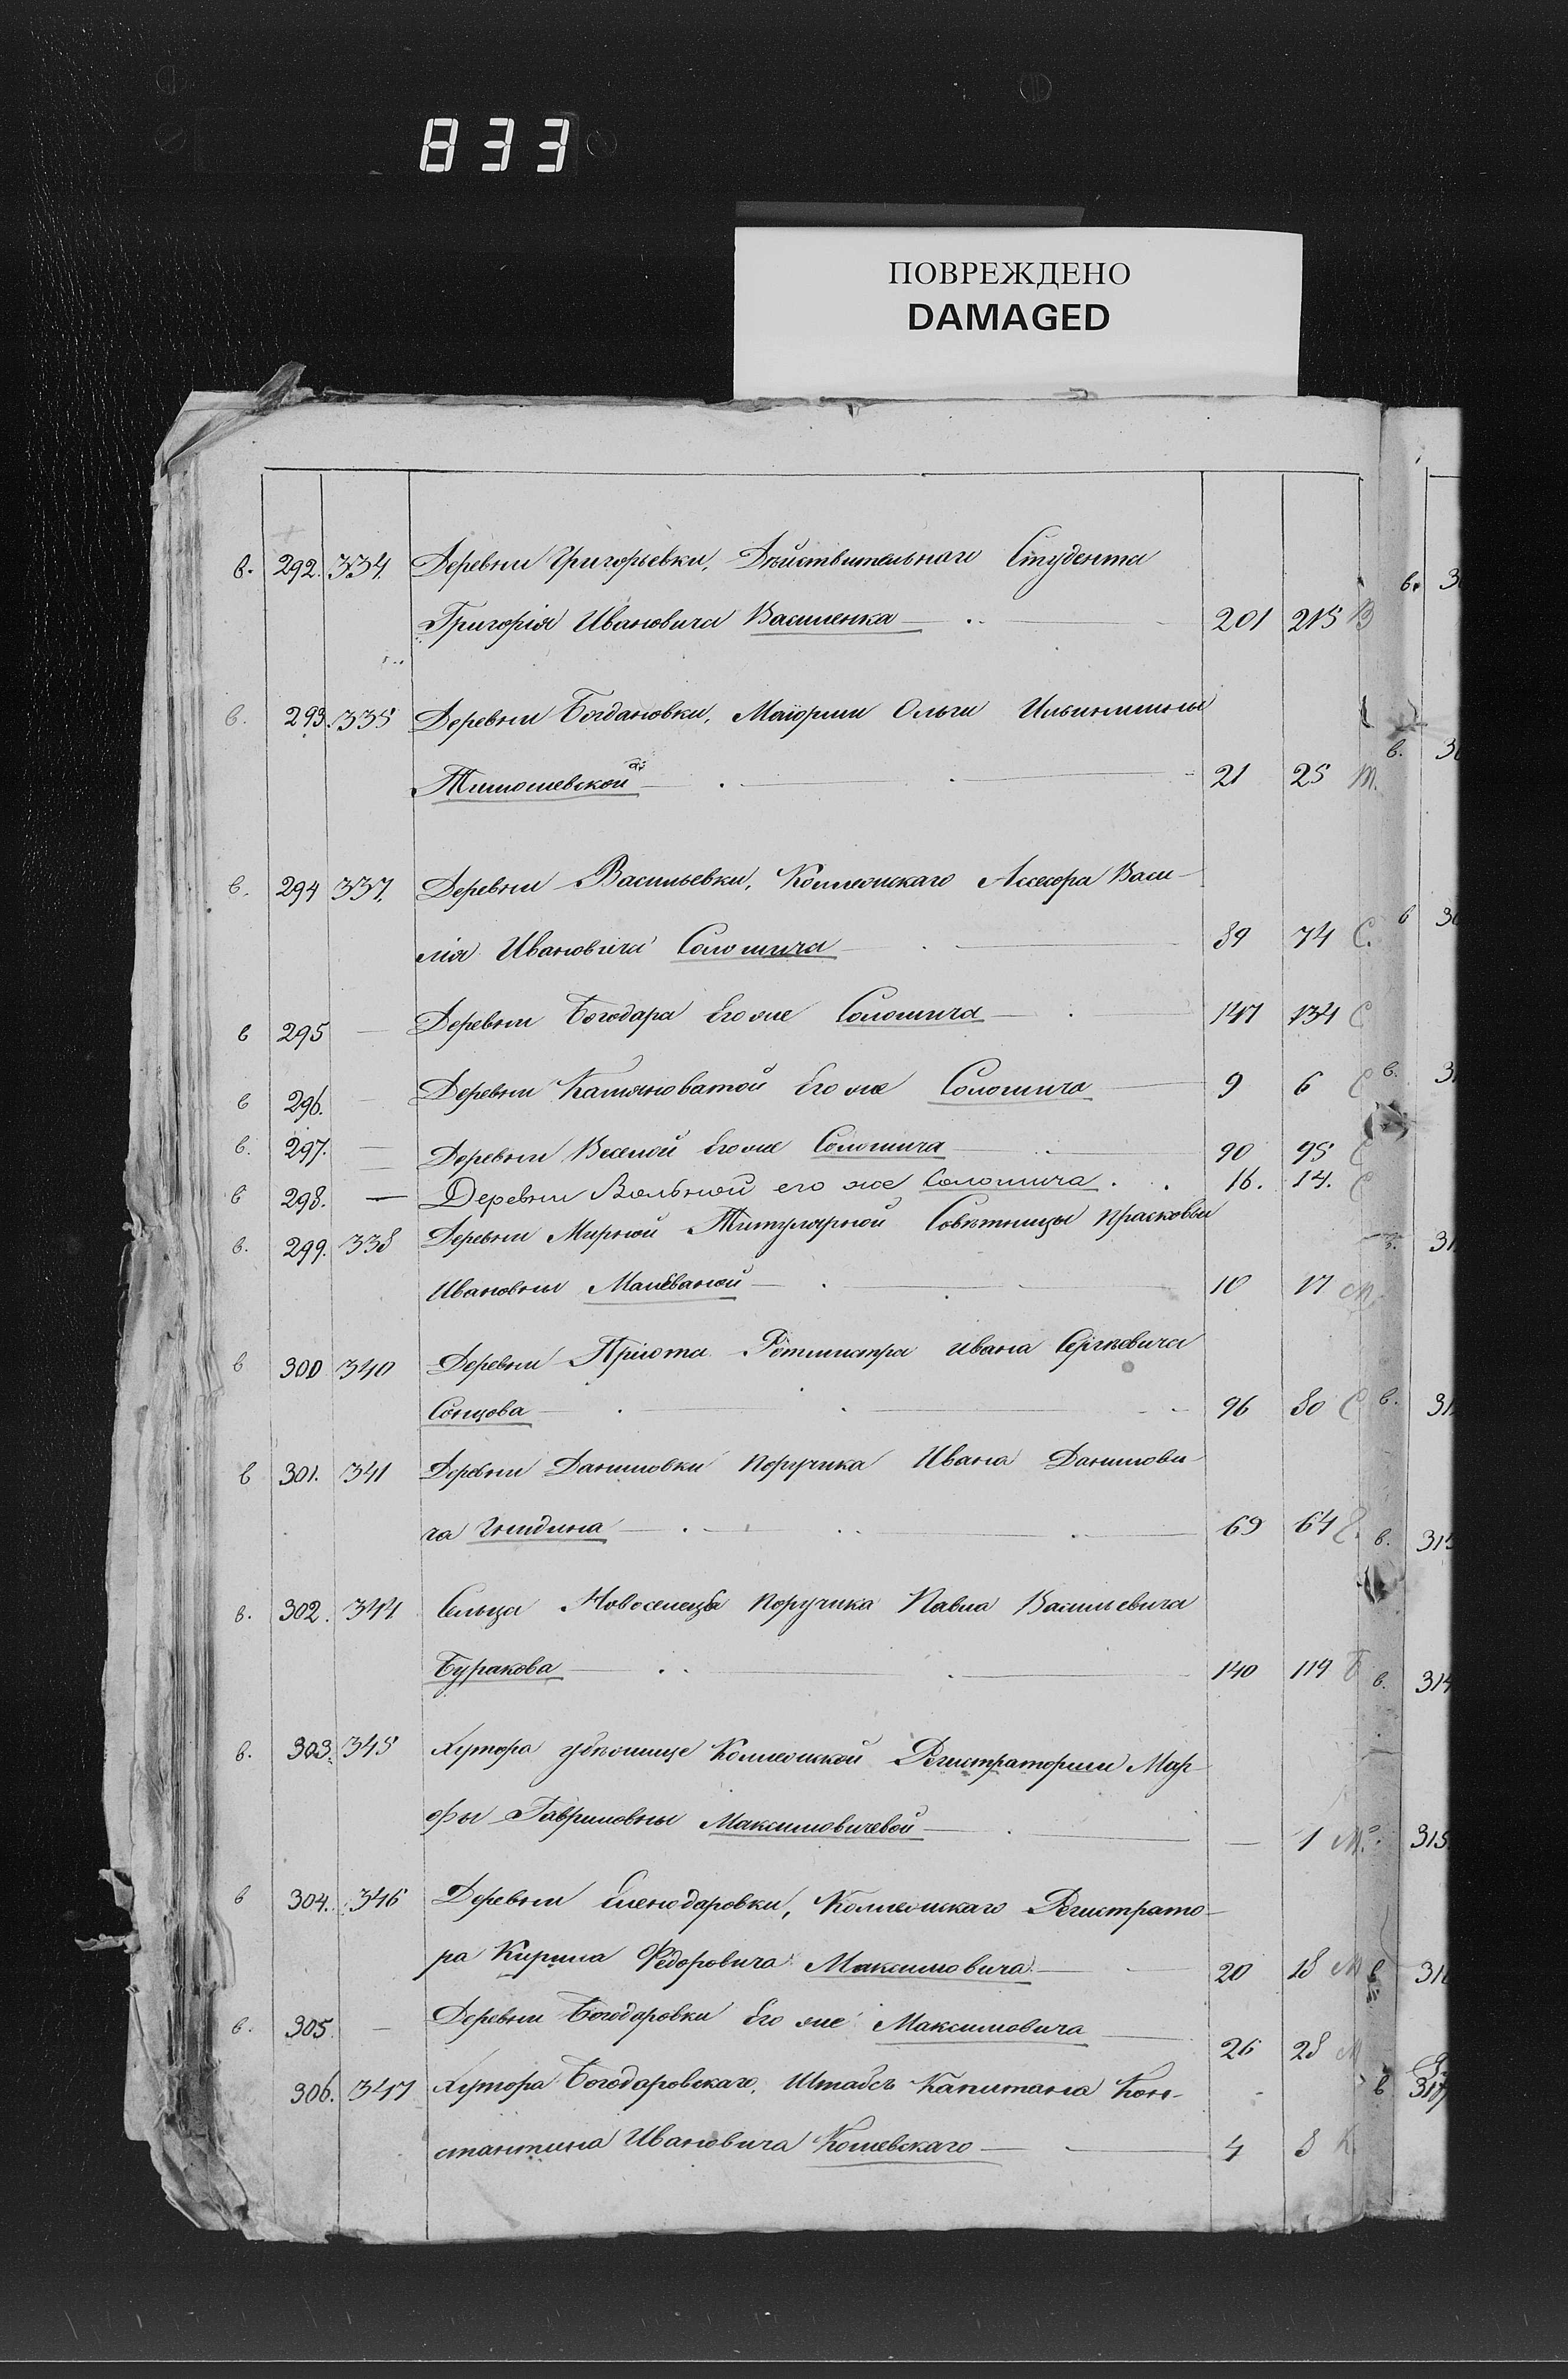 833
ПОВРЕЖДЕНО
DAMAGED
в. 292. 334. Деревни Григорьевки, Дѣйствительнаго Студента
Григорія Ивановича Василенка 201 215 В
в. 293. 335 Деревни Богдановки, Маіорши Ольги Ильинишны
Тимошевской 21 25 Т.
в. 294 337. Деревни Васильевки, Коллежскаго Ассесора Васи-
лія Ивановича Солошича 89 74 С.
в 295 — Деревни Богодара Его же Солошича 147 134 С
в 296. Деревни Каменоватой Его же Солошича 9 6 С
в. 297. — Деревни Веселой Его же Солошича 90 95 С
в 298. — Деревни Вольной его же Солошича . . 16. 14. С
в. 299. 338 Деревни Мирной Титулярной Совѣтницы Прасковьи
Ивановны Малеваной 10 17 М.
в 300 340 Деревни Пріюта Ротмистра Ивана Сергѣевича
Сонцова 96 80 С
в 301. 341 Деревни Даниловки Поручика Ивана Данилови-
ча 69 64
в. 302. 344 Сельца Новоселецъ Поручика Павла Васильевича
Буракова 140 119 Б
в. 303. 345 Хутора Убѣжище Коллежской Регистраторши Мар-
фы Гавриловны Максимовичевой — 1 М.
в 304. 346 Деревни Еленодаровки, Коллежскаго Регистрато-
ра Кирила Федоровича Максимовича 20 18 М
в. 305. — Деревни Богодаровки Его же Максимовича 26 28 М
306. 347 Хутора Богодаровскаго, Штабсъ Капитана Кон-
стантина Ивановича Кошевскаго 4 8 К